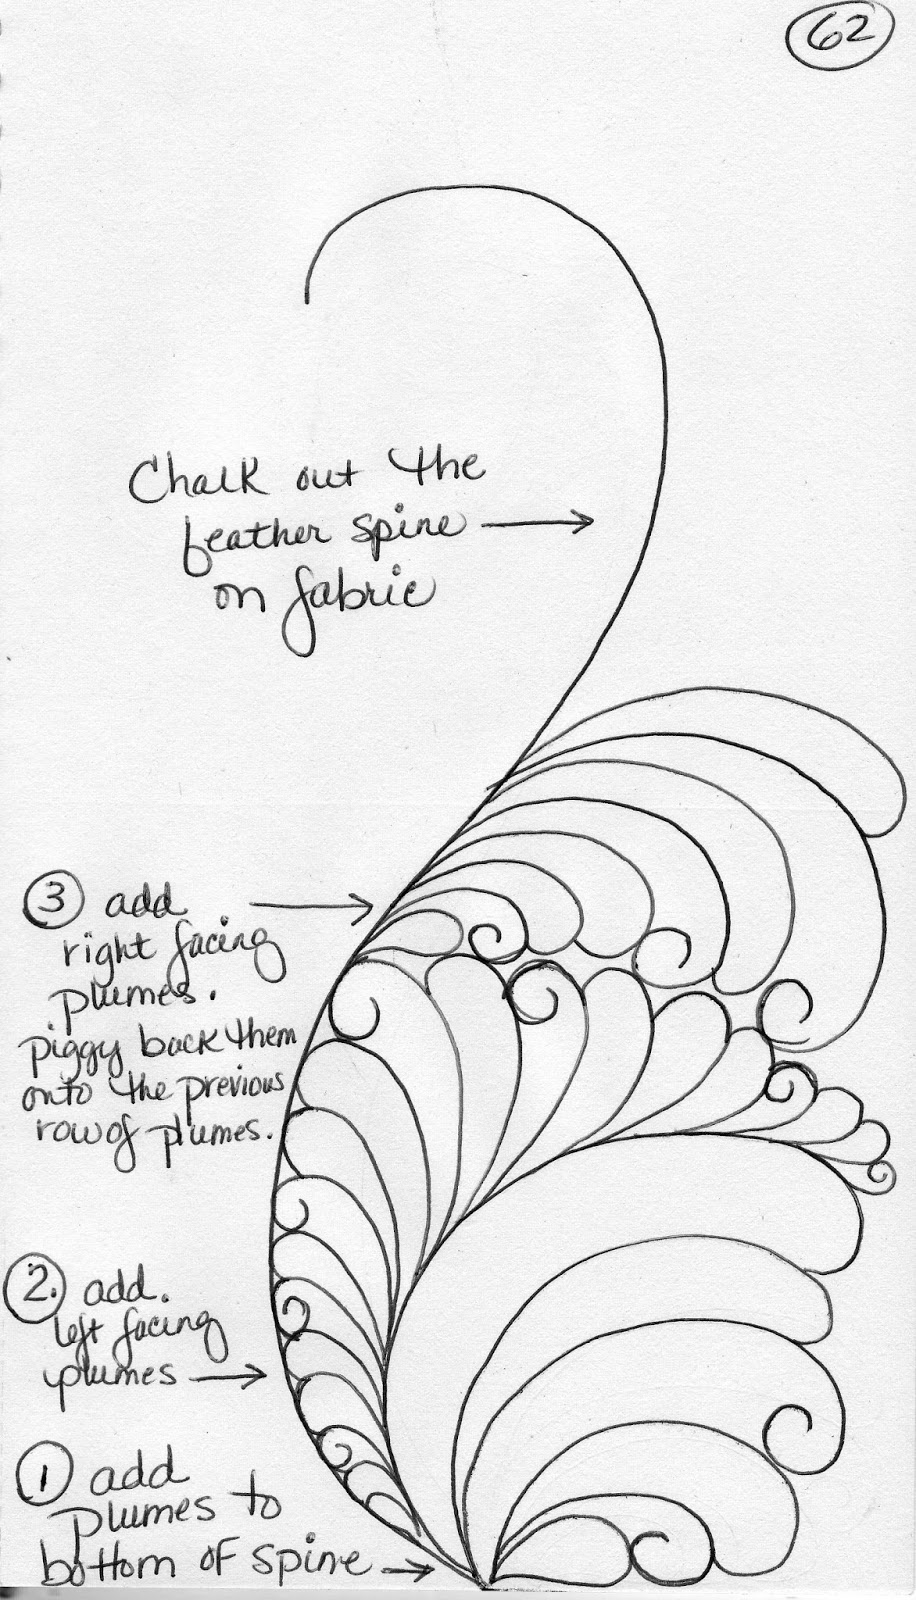 62
Chalk out the
feather spine
on fabric
3 add
right facing
plumes.
piggy back them
onto the previous
row of plumes.
2. add.
left facing
plumes
1 add
plumes to
bottom of spine